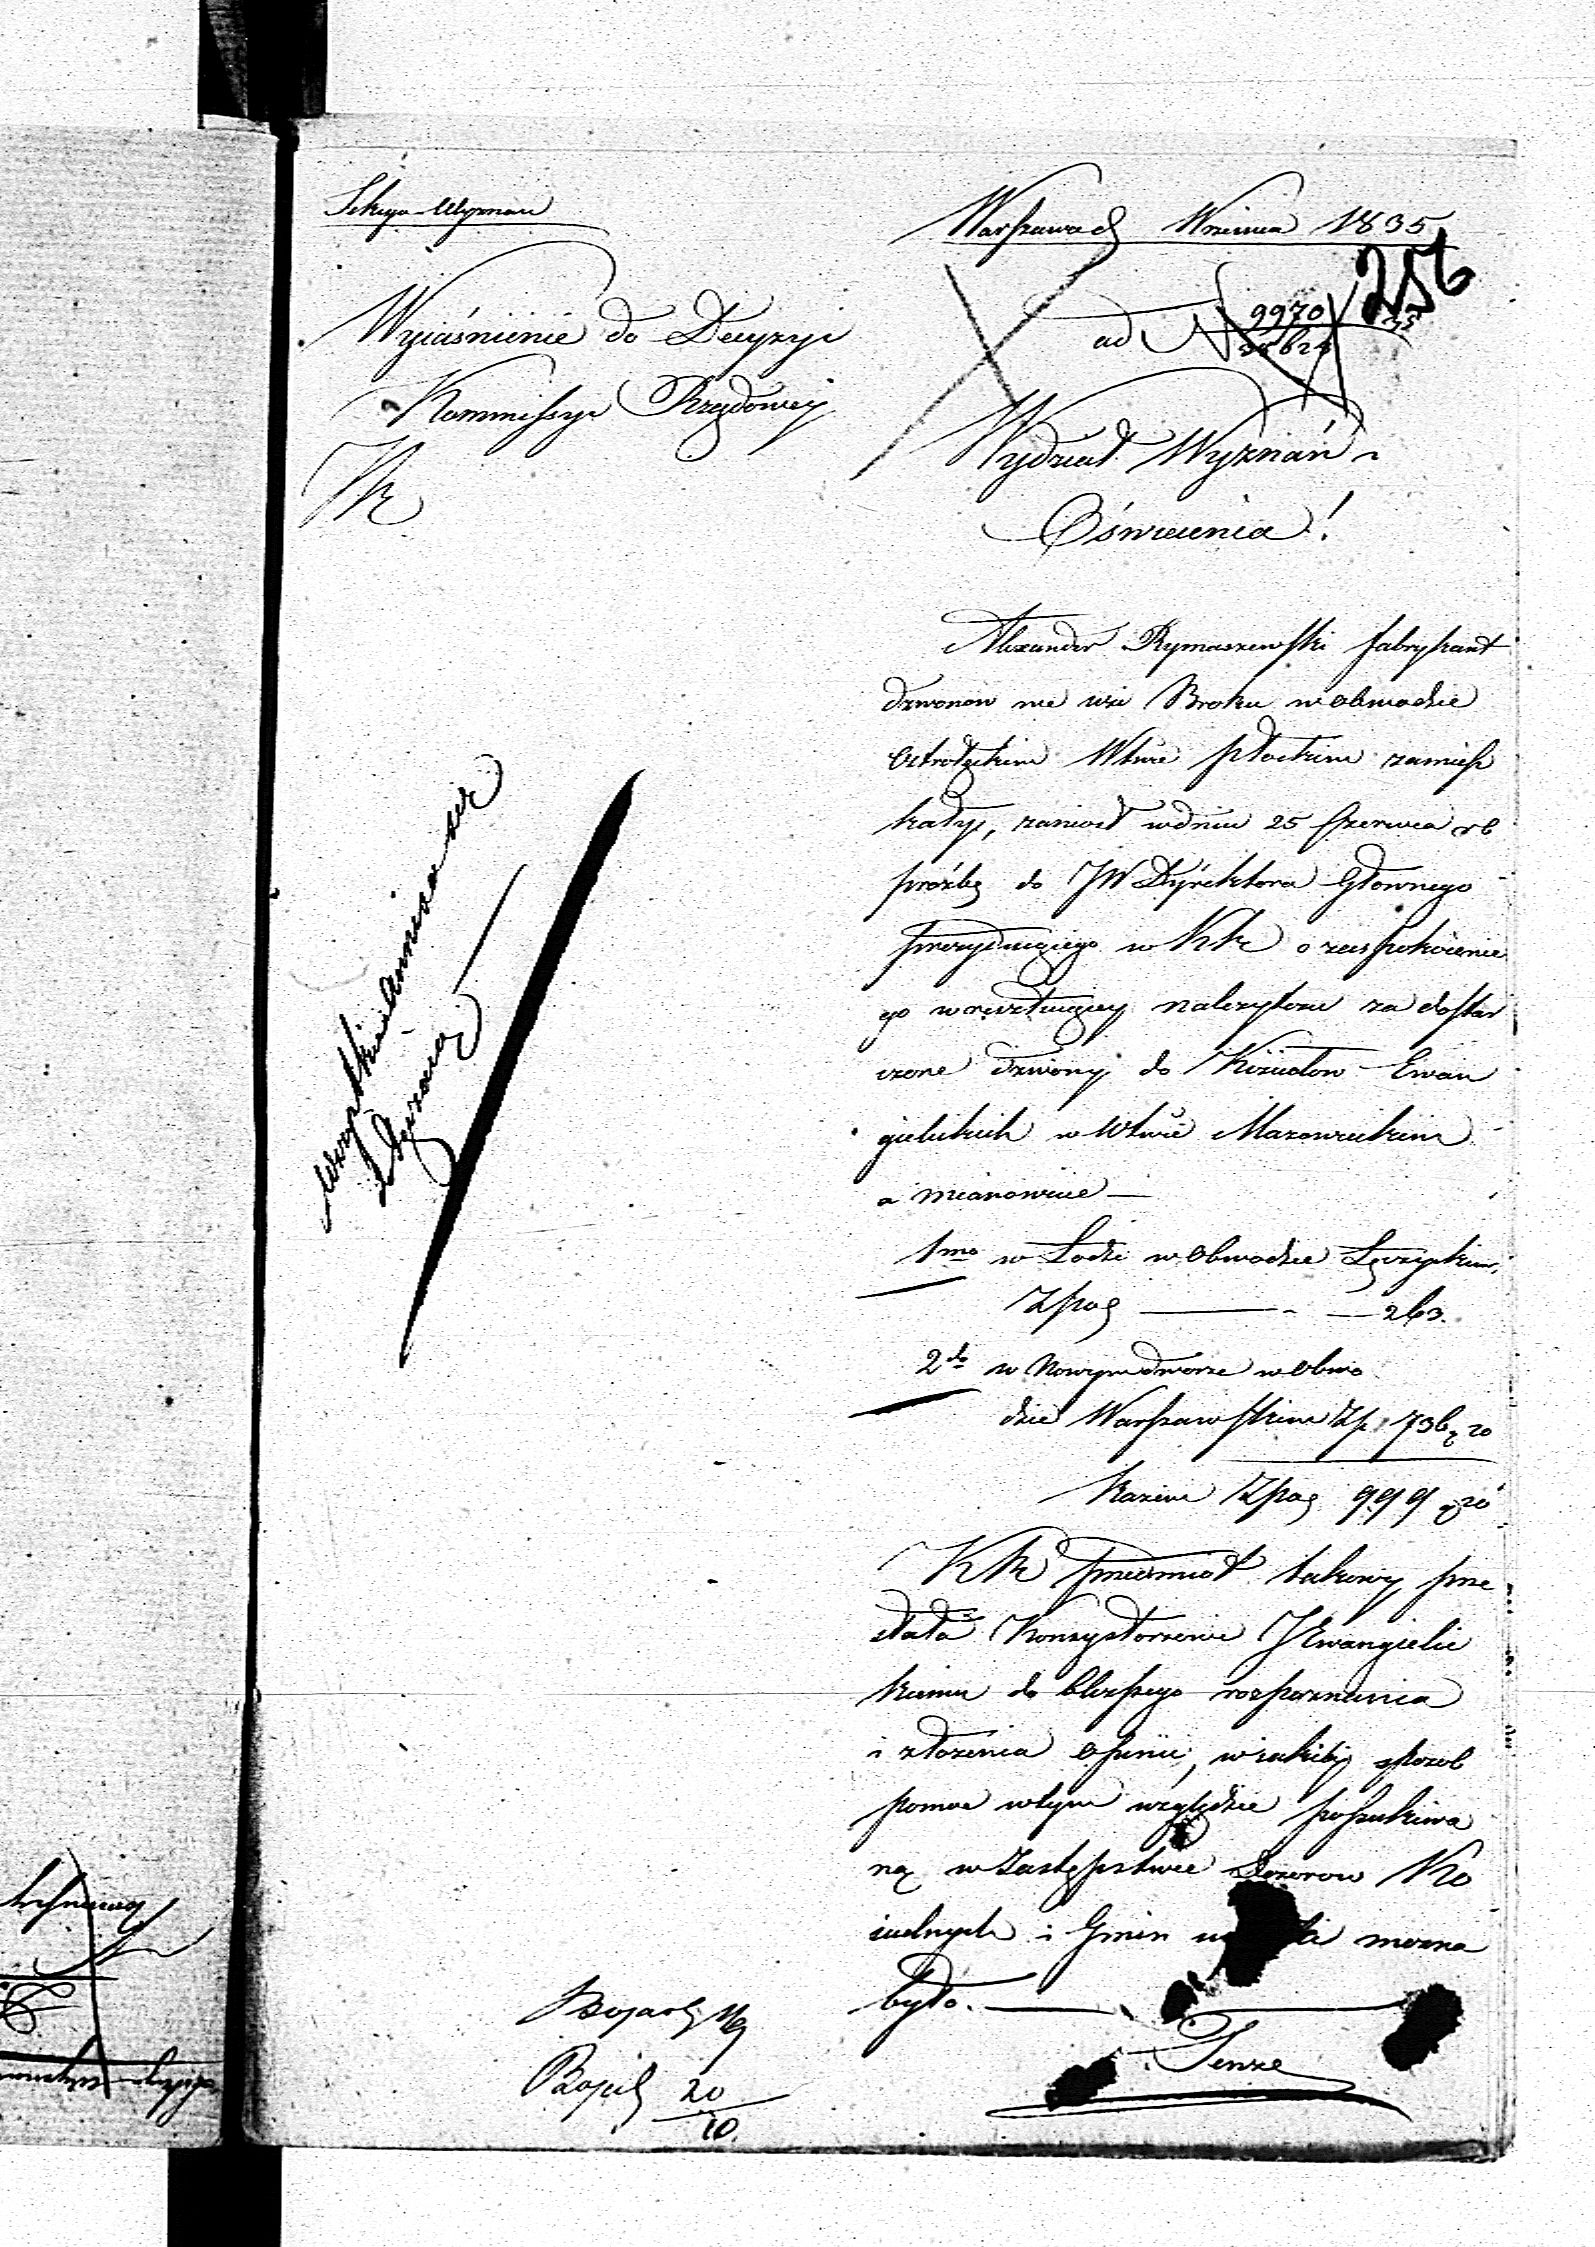 Sekcya Wyznań
Wyiaśnienie do Decyzyi
Kommissyi Rządowey
Warszawa d Września 1835
256
ad N 9970
Wydział Wyznań i
Oświecenia!
Alexander Rymaszewski fabrykant
dzwonów we wsi Broku w obwodzie
Ostrołęckim Wtwie płockim zamiesz
kały, zaniósł w dniu 25 Czerwca rb
prośbę do JW Dyrektora Głownego
prezyduiącego w KR o zaspokoienie
go w resztuiącey należytości za dostar
czone dzwony do Kościołow Ewan
gielickich w Wtwie Mazowieckim
a mianowicie —
1mo w Łodzi w Obwodzie Łęczyckim,
Zpol — 263.
2do w Nowymdworze w obwo
dzie Warszawskim Zł. 736 g 20
Razem Zpol 999 g 20
KR przedmiot takowy prze
słała Konsystorzowi JEwangielic
kiemu do bliższego rozpoznania
i złożenia Opinii, w iakiby sposob
pomoc w tym względzie poszukiwa
ną w Zastępstwie Dozorow Ko
ścielnych i Gmin można
było. —
Tenże
wszystkie
20
10